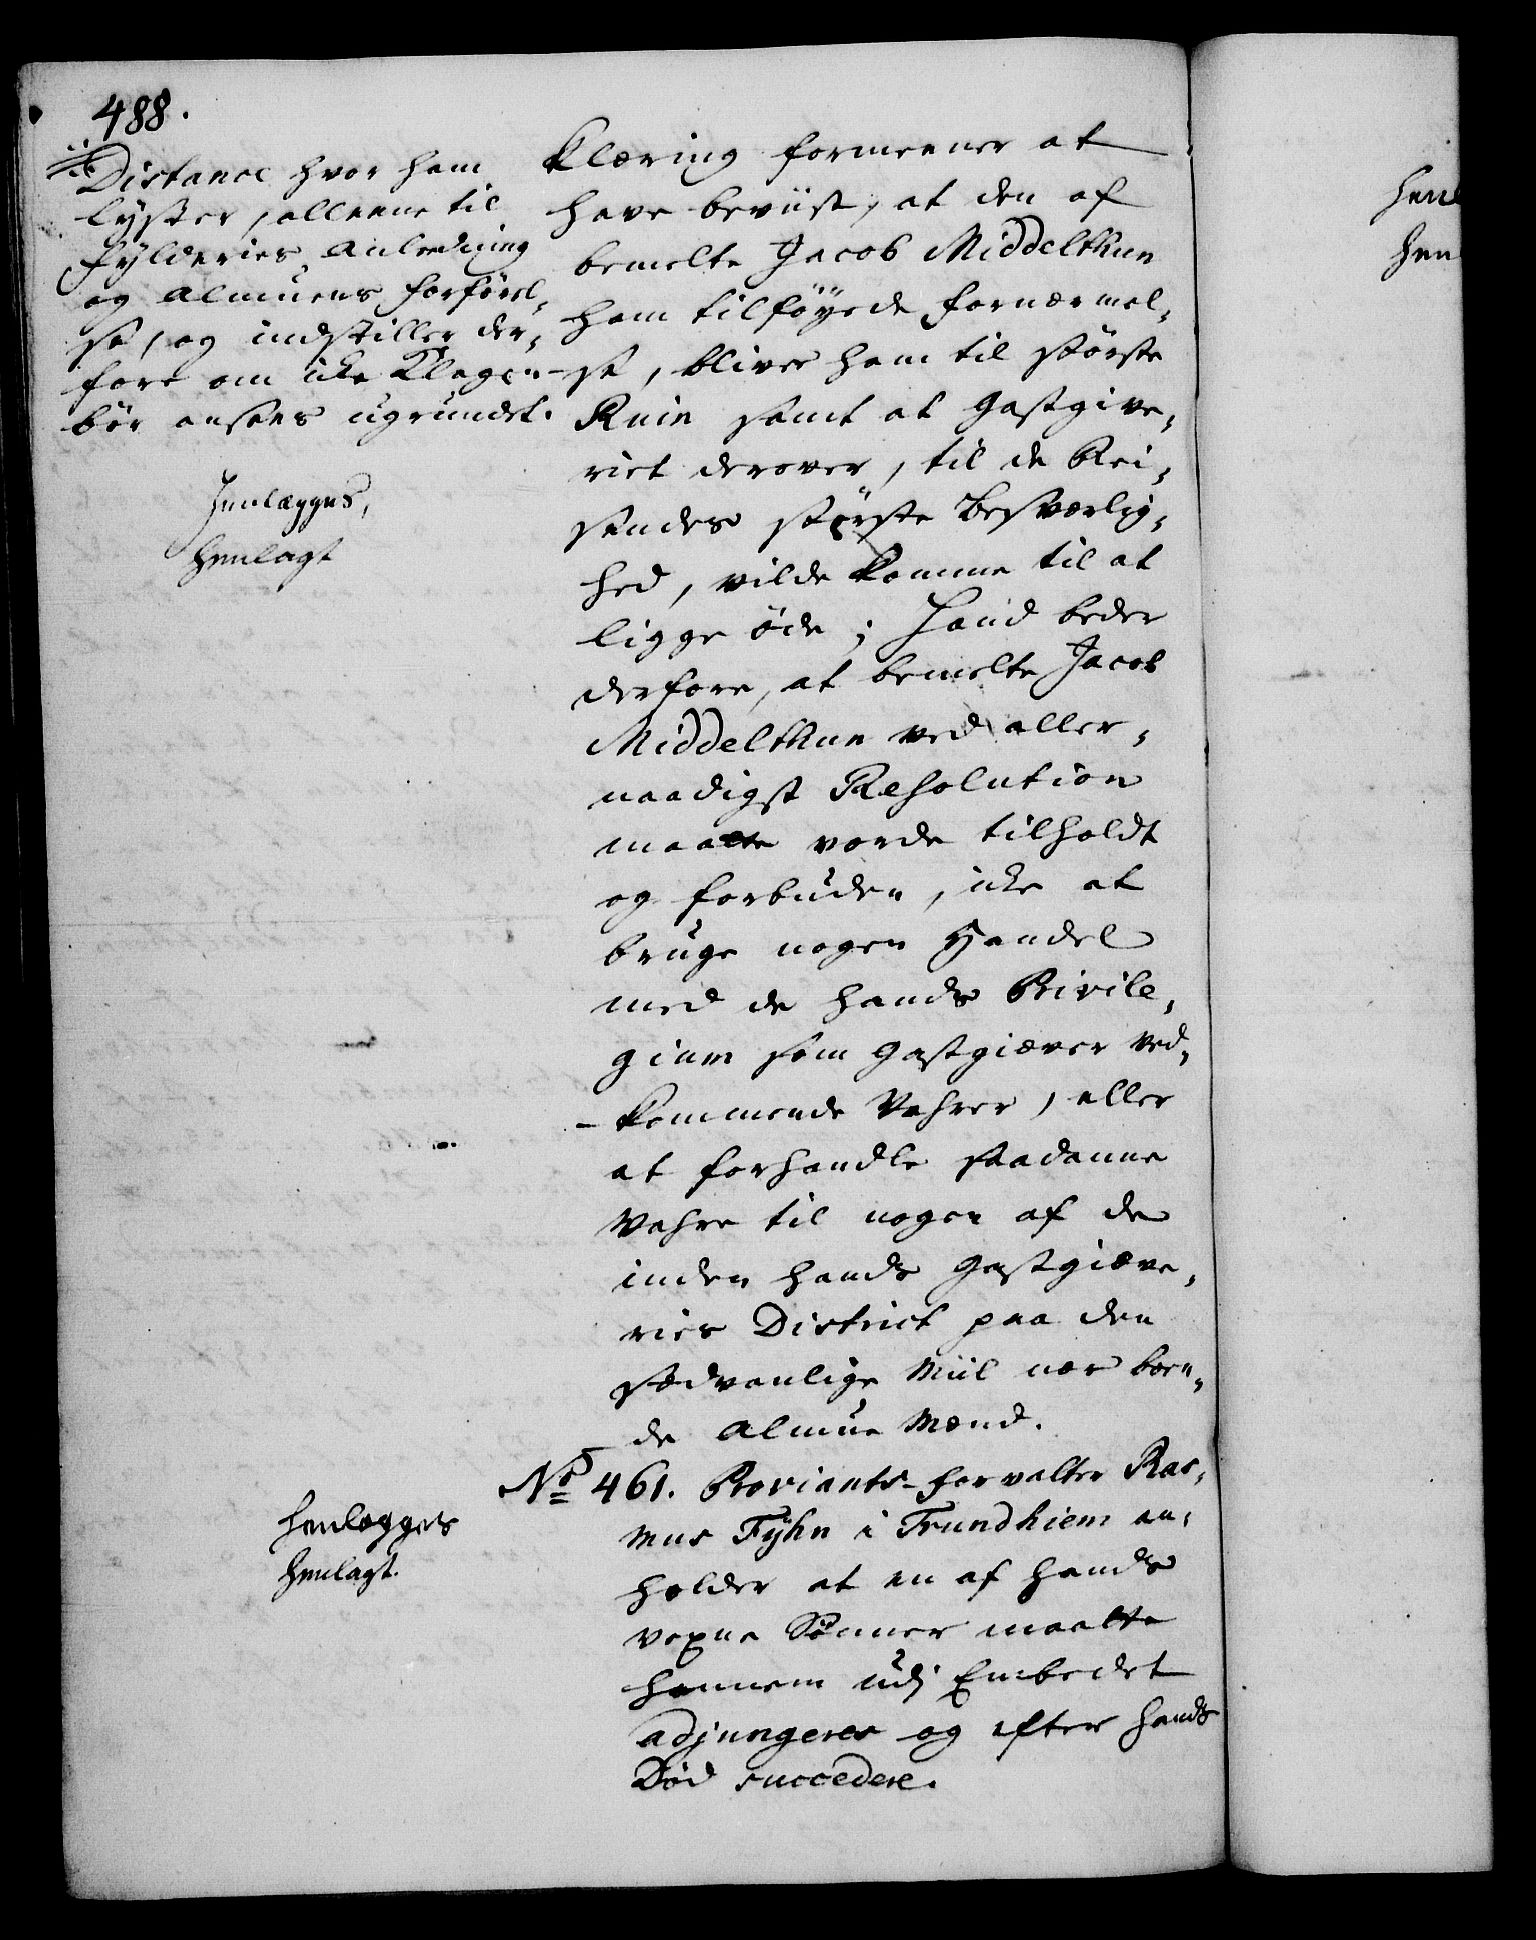 488.
Distance hvor ham
lyster, alleene til
fylderies Anledning
og Almuens forförel-
se, og indstiller der-
fore om icke Klagen
bör ansees ugrundet.
Henlægges,
henlagt
klæring formeener at
have beviist, at den af
bemelte Jacob Middelthun
ham tilföyede fornærmel-
se, bliver ham til störste
Ruin samt at Gastgive-
riet derover, til de Rei-
sendes störste Besværlig-
hed, vilde komme til at
ligge öde; Hand beder
derfore, at bemelte Jacob
Middelthun ved aller-
naadigst Resolution
maatte vorde tilholdt
og forbuden, icke at
bruge nogen Handel
med de hands Privile-
gium som Gastgiæver ved-
kommende Vahrer, eller
at forhandle saadanne
Vahre til nogen af de
inden hands Gastgiæve-
ries District paa den
sædvanlige Miil nær boen-
de Almue Mænd.
No 461. Proviants-forvalter Ras-
mus Fÿhn i Trundhiem an-
holder at en af hands
voxne Sönner maatte
hannem udj Embedet
adjungeres og efter hands
Död succedere.
Henlægges
henlagt.